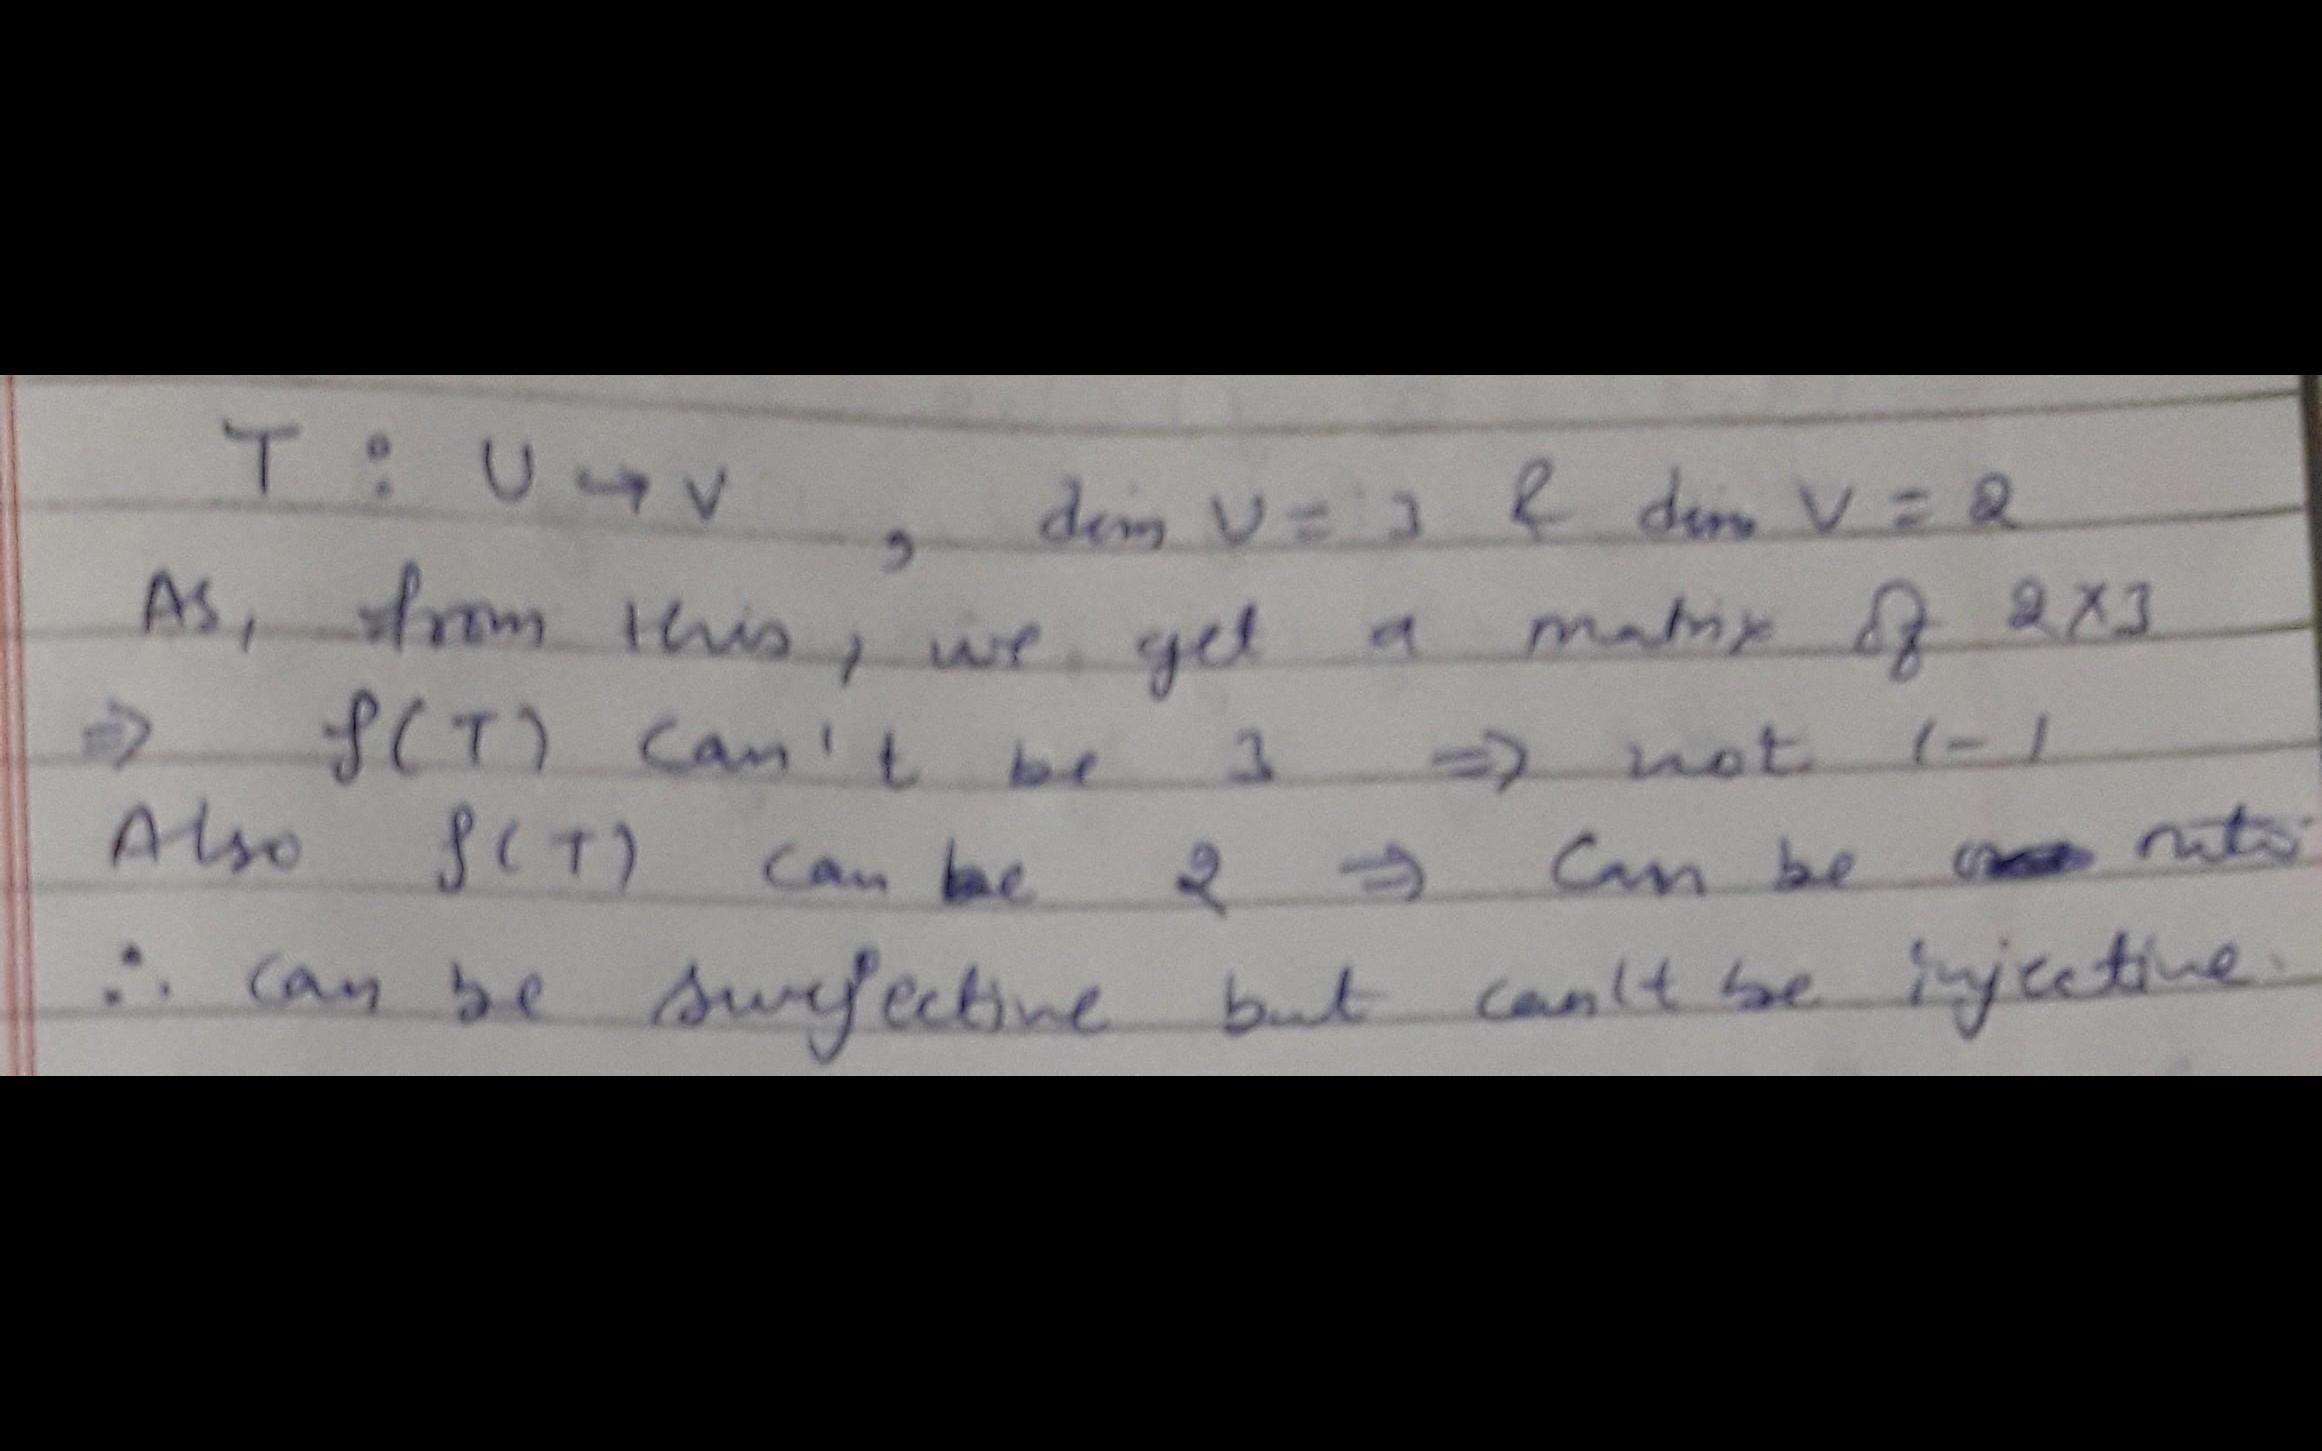 T : U → V , dim U = 3 & dim V = 2
As, from this, we get a matrix of 2×3
⇒ ρ(T) can't be 3 ⇒ not 1-1
Also ρ(T) can be 2 ⇒ can be onto
∴ can be surjective but can't be injective.